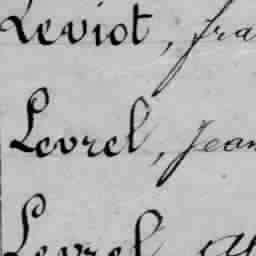 Leviot, fra
Levrel, Jean
Levrel